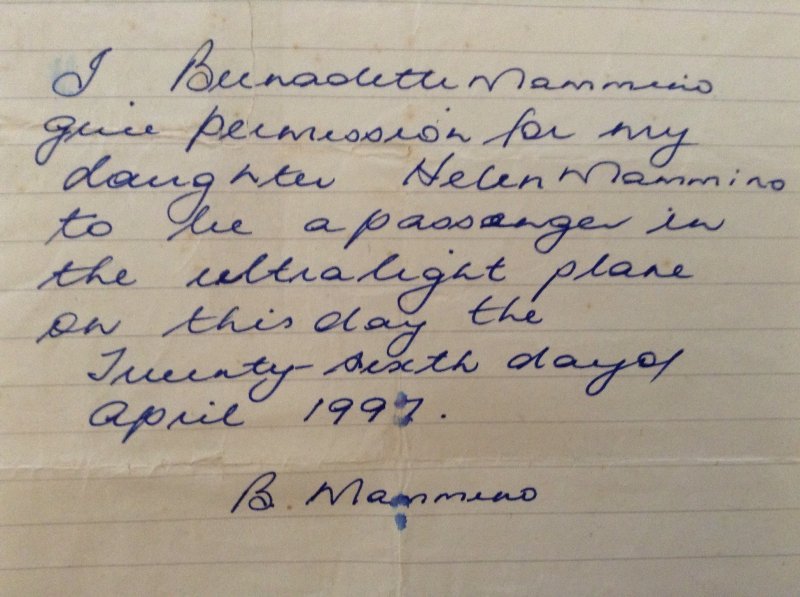 I Bernadette Mammino
give permission for my
daughter Helen Mammino
to be a passenger in
the ultralight plane
on this day the
Twenty-sixth day of
April 1997.
B. Mammino